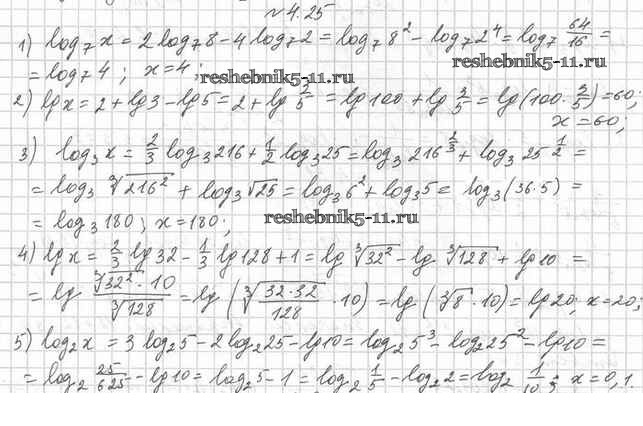 №4.25
1) log₇x = 2log₇8 - 4log₇2 = log₇8² - log₇2⁴ = log₇ 64/16 =
= log₇4; x=4;
reshebnik5-11.ru
reshebnik5-11.ru
2) lgx = 2 + lg3 - lg5 = 2 + lg 3/5 = lg100 + lg 3/5 = lg(100· 3/5) = 60;
x = 60;
3) log₃x = 2/3 log₃216 + 1/2 log₃25 = log₃ 216^(2/3) + log₃ 25^(1/2) =
= log₃ ∛216² + log₃√25 = log₃6² + log₃5 = log₃(36·5) =
= log₃180; x=180;
reshebnik5-11.ru
4) lgx = 2/3 lg32 - 1/3 lg128 + 1 = lg ∛32² - lg ∛128 + lg10 =
= lg (∛32² · 10)/∛128 = lg (∛(32·32/128) · 10) = lg (∛8 · 10) = lg20; x=20;
5) log₂x = 3log₂5 - 2log₂25 - lg10 = log₂5³ - log₂25² - lg10 =
= log₂ 25/625 - lg10 = log₂5 - 1 = log₂ 1/5 - log₂2 = log₂ 1/10; x=0,1.